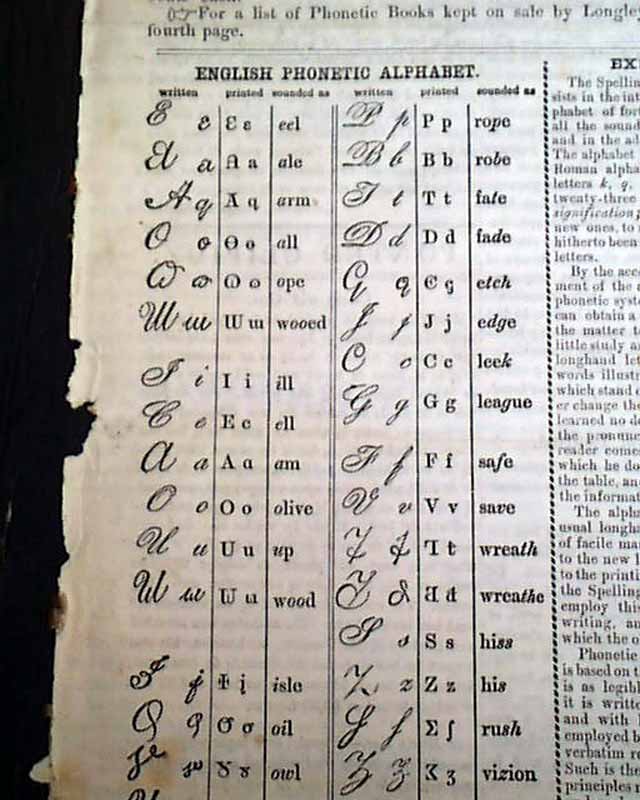 ☞For a list of Phonetic Books kept on sale by Longley
fourth page.
ENGLISH PHONETIC ALPHABET.
written printed sounded as written printed sounded as
Ɛ ɛ eel P p P p rope
A a ale B b B b robe
arm T t T t fate
Ɵ ɵ all D d D d fade
ope etch
Ɯ ɯ wooed J j J j edge
I i I i ill C c C c leek
E e E e ell G g G g league
A a A a am F f F f safe
O o O o olive V v V v save
U u U u up wreath
wood wreathe
S s S s hiss
isle Z z Z z his
oil Σ ʃ rush
owl vizion
EX
The Spellin
sists in the int
phabet of for
all the sound
and in the ad
The alphabet
Roman alpha
letters k, q,
twenty-three
signification;
new ones, to
hitherto becau
letters.
By the acc
ment of the a
phonetic syste
can obtain a
the matter to
little study an
longhand let
words illustr
which stand o
er change the
learned no de
the pronunc
reader comes
which he do
the table, and
the informat
The alpha
usual longha
of facile man
to the new l
to the printi
the Spelling
employ this
writing, an
which the o
Phonetic
is based on t
is as legibl
it is writte
and with l
employed b
verbatim re
Such is the
principles